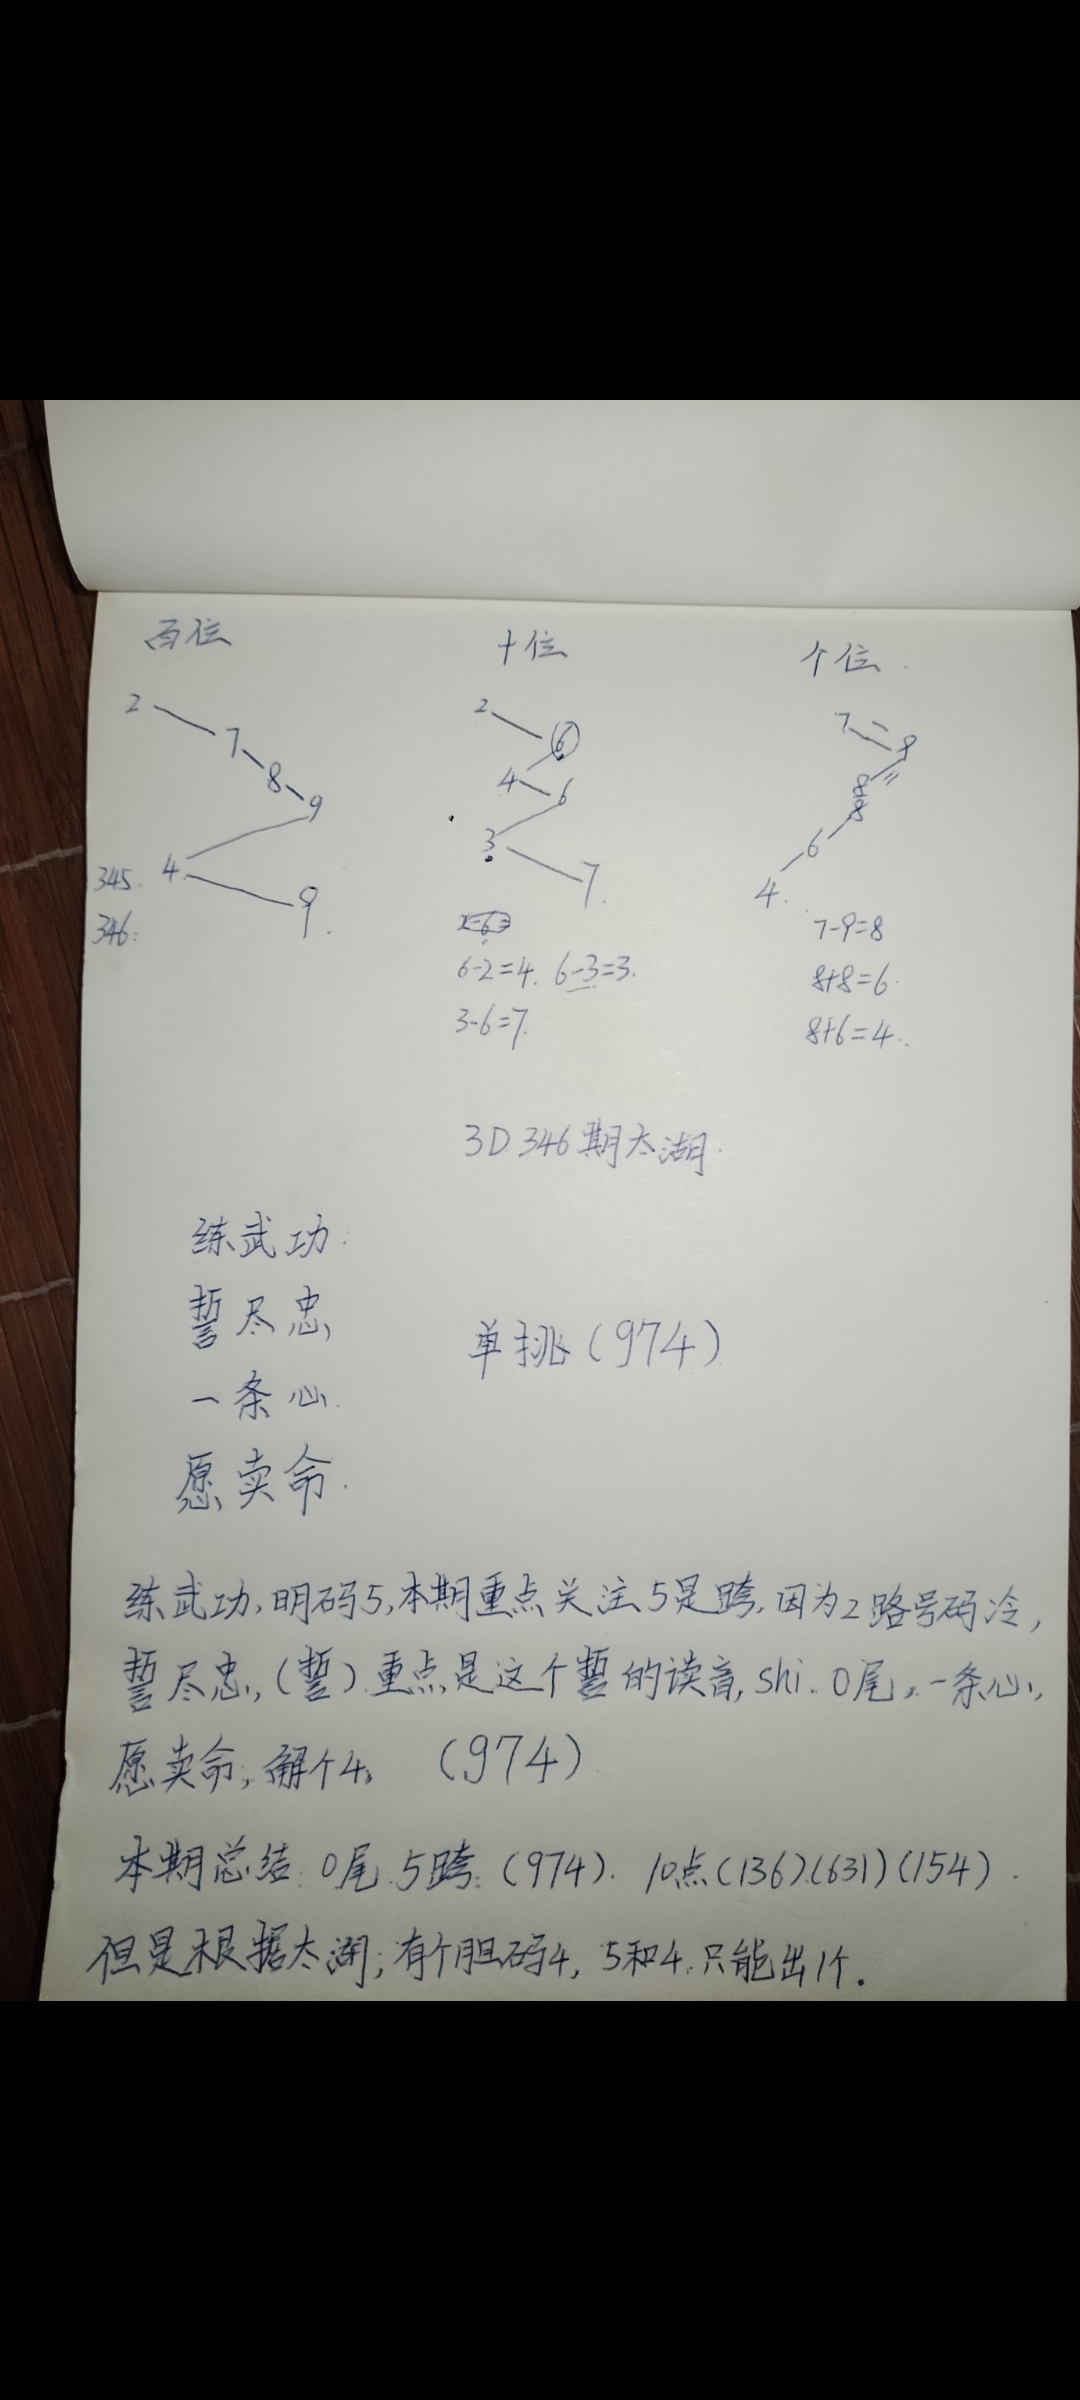 百位 十位 个位
2 2 7 = 9
7 6 =
8 4 6 8+8
9 3 6
345. 4 7 4.
346: 9.
6-2=4. 6-3=3. 7-9=8
3-6=7. 8+8=6.
8+6=4..
3D 346期太湖.
练武功:
誓尽忠,
一条心. 单挑(974)
愿卖命.
练武功,明码5,本期重点关注5是跨,因为2路号码冷,
誓尽忠,(誓)重点是这个誓的读音,shi. 0尾,一条心,
愿卖命,解个4, (974)
本期总结:0尾.5跨:(974). 10点(136).(631)(154).
但是根据太湖;有个胆码4, 5和4.只能出1个.